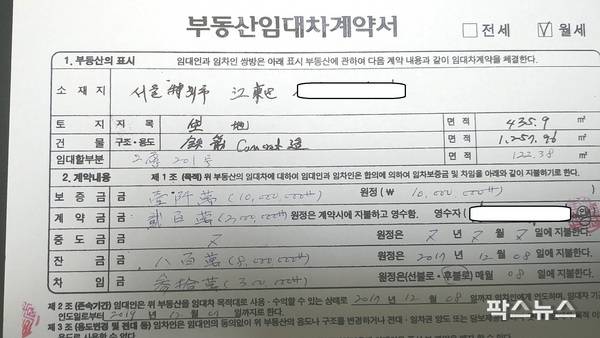 부동산임대차계약서
전세 월세
1. 부동산의 표시 임대인과 임차인 쌍방은 아래 표시 부동산에 관하여 다음 계약 내용과 같이 임대차계약을 체결한다.
소재지 서울 特別市 江東区
토지 지목 垈地 면적 435.9 ㎡
건물 구조·용도 鉄筋 면적 1,257.96 ㎡
임대할부분 2층 201호 면적 122.38 ㎡
2. 계약내용 제 1 조 (목적) 위 부동산의 임대차에 대하여 임대인과 임차인은 합의에 의하여 임차보증금 및 차임을 아래와 같이 지불하기로 한다.
보증금 금 壹阡萬 (10,000,000) 원정 (₩ 10,000,000)
계약금 금 貳百萬 (2,000,000) 원정은 계약시에 지불하고 영수함. 영수자 (
중도금 금 원정은 년 월 일에 지불한다.
잔금 금 八百萬 (8,000,000) 원정은 2017 년 12 월 08 일에 지불한다.
차임 금 參拾萬 (300,000) 원정은(선불로·후불로) 매월 08 일에 지불한다.
제 2 조 (존속기간) 임대인은 위 부동산을 임대차 목적대로 사용·수익할 수 있는 상태로 2017 년 12 월 08 일까지 임차인에게 인도하며, 임대차
인도일로부터 2019 년 12 월 일까지로 한다.
제 3 조 (용도변경 및 전대 등) 임차인은 임대인의 동의없이 위 부동산의 용도나 구조를 변경하거나 전대·임차권 양도 또는
팍스뉴스